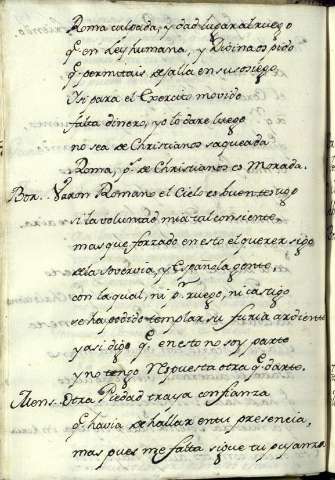 Roma culpada, y dad lugar al ruego
q.e en Ley humana, y Divina os pido
q.e permitais se halla en su sosiego,
Y si para el Exercito movido
falta dinero, yo lo dare luego
no sea de Christianos saqueada
Roma, q.e de Christianos es Morada.
Bor. Varon Romano el Cielo es buen testigo
si la voluntad mia tal consiente,
mas que forzado en esto el querer sigo
de la sovervia, y Española gente,
con la qual, ni p.r ruego, ni castigo
se ha podido templar su furia ardiente
y asi digo q.e en esto no soy parte
y no tengo respuesta otra q.e darte.
Mens. Otra Piedad traya confianza
q.e havia de hallar en tu presencia,
mas pues me falta sigue tu pujanza